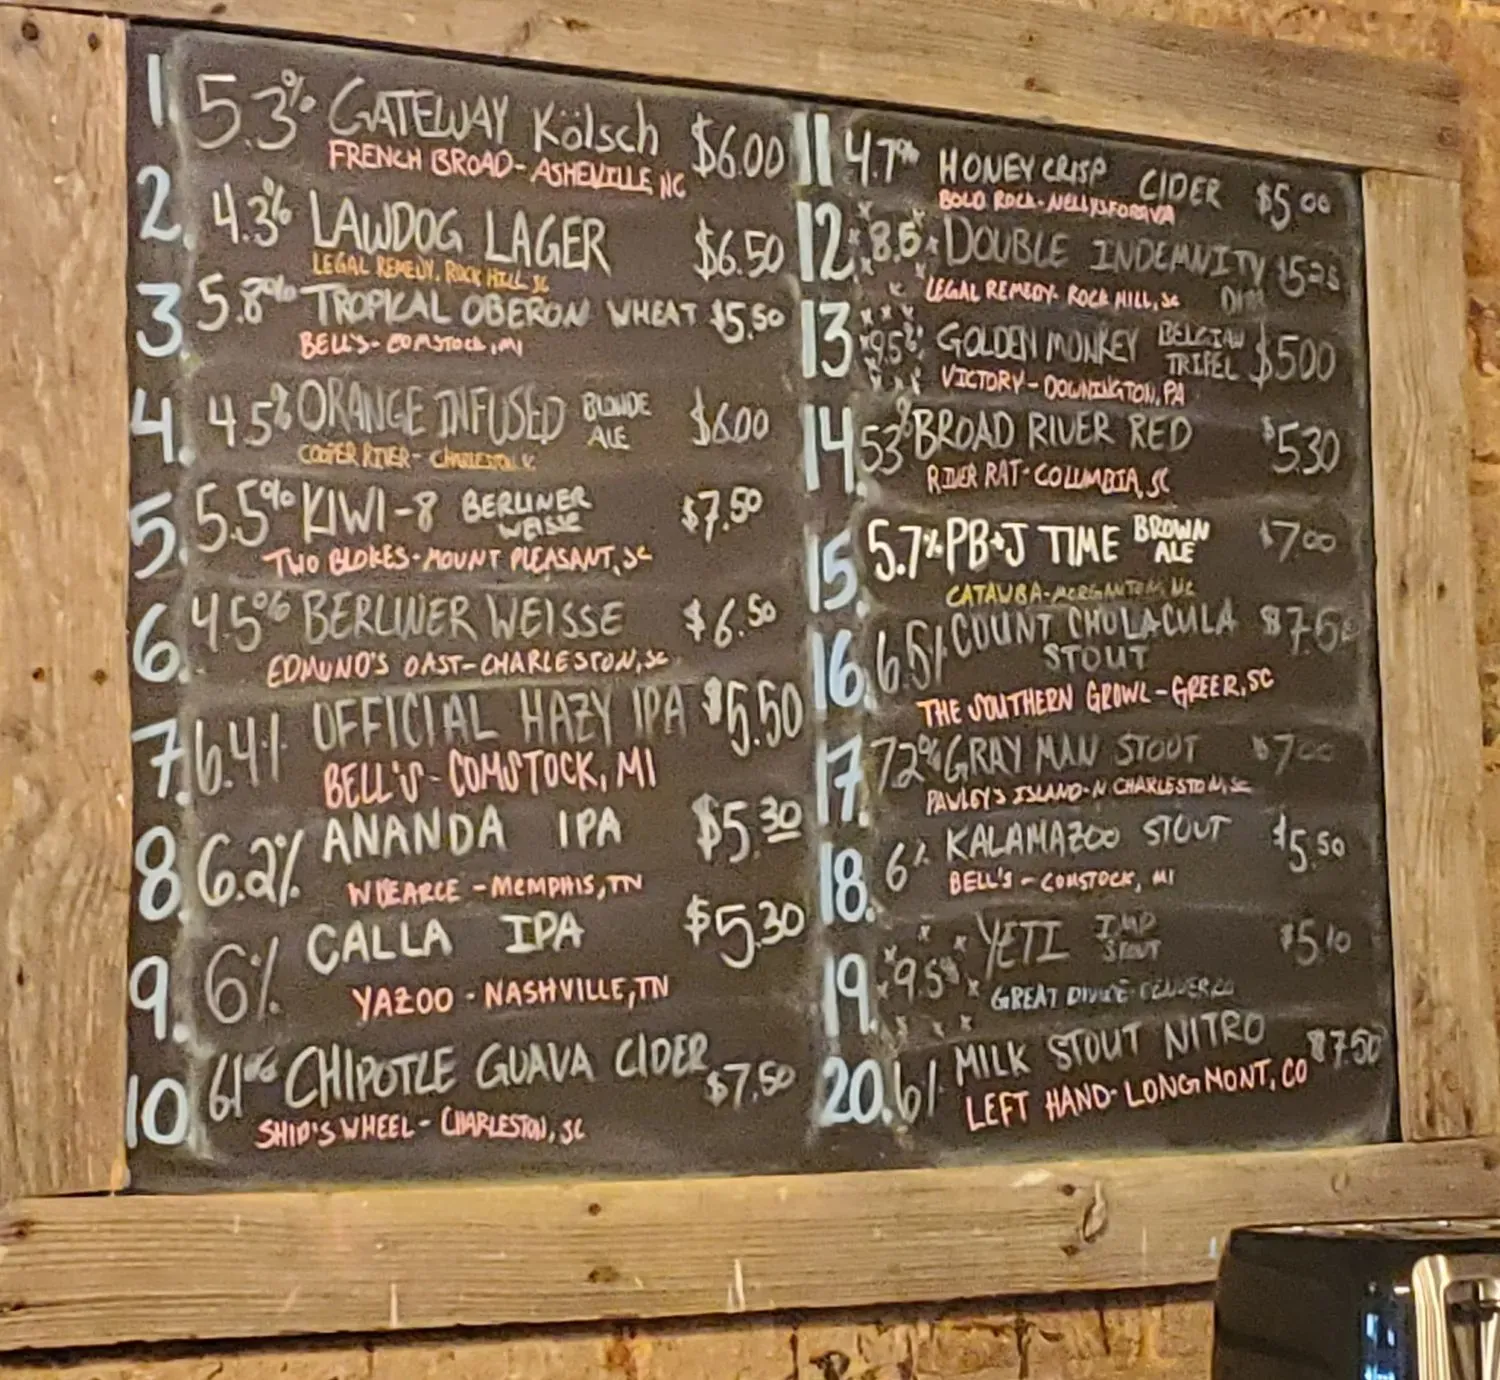 1. 5.3% GATEWAY Kölsch $6.00
FRENCH BROAD - ASHEVILLE, NC
2. 4.3% LAWDOG LAGER $6.50
LEGAL REMEDY, ROCK HILL, SC
3. 5.8% TROPICAL OBERON WHEAT $5.50
BELL'S - COMSTOCK, MI
4. 4.5% ORANGE INFUSED BLONDE ALE $6.00
COOPER RIVER - CHARLESTON,
5. 5.5% KIWI-8 BERLINER WEISSE $7.50
TWO BLOKES - MOUNT PLEASANT, SC
6. 4.5% BERLINER WEISSE $6.50
EDMUND'S OAST - CHARLESTON, SC
7. 6.4% OFFICIAL HAZY IPA $5.50
BELL'S - COMSTOCK, MI
8. 6.2% ANANDA IPA $5.30
WISEACRE - MEMPHIS, TN
9. 6% CALLA IPA $5.30
YAZOO - NASHVILLE, TN
10. 6.1% CHIPOTLE GUAVA CIDER $7.50
SHIP'S WHEEL - CHARLESTON, SC
11 4.7% HONEY CRISP CIDER $5.00
BOLD ROCK - NELLYSFORD VA
12. 8.5% DOUBLE INDEMNITY DIPA $5.25
LEGAL REMEDY - ROCK HILL, SC
13. 9.5% GOLDEN MONKEY BELGIAN TRIPEL $500
VICTORY - DOWNINGTON, PA
14. 53% BROAD RIVER RED $5.30
RIVER RAT - COLUMBIA, SC
15. 5.7% PB+J TIME BROWN ALE $7.00
CATAWBA - MORGANTON, NC
16. 6.5% COUNT CHOLACULA $7.50
STOUT
THE SOUTHERN GROWL - GREER, SC
17. 7.2% GRAY MAN STOUT $7.00
PAWLEY'S ISLAND - N CHARLESTON, SC
18. 6% KALAMAZOO STOUT $5.50
BELL'S - COMSTOCK, MI
19. 9.5% YETI IMP STOUT $5.10
GREAT DIVIDE - DENVER, CO
20. 6% MILK STOUT NITRO $7.50
LEFT HAND - LONGMONT, CO